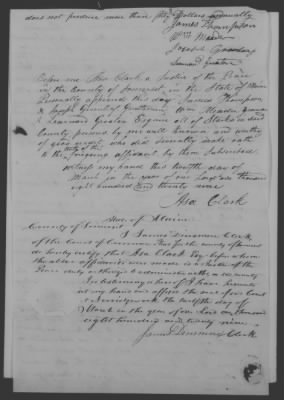 does not produce more than fifty Dollars annually
James Thompson
Wm H Meader
Joseph Greenleaf
Leonard Greaton
Before me Asa Clark a Justice of the Peace
in the County of Somerset, in the State of Maine
personally appeared this day James Thompson
& Joseph Greenleaf Gentlemen, Wm Meader
& Leonard Greaton Esquire all of Starks in said
County persons by me well known and worthy
of good credit, who did severally make oath
to the truth of the foregoing affidavit by them subscribed
witness my hand this twelfth day of
March in the year of our Lord one thousand
eight hundred and twenty nine
Asa Clark
State of Maine
County of Somerset
I James Dinsmore Clerk
of the Court of Common Pleas for the county aforesaid
do hereby certify that Asa Clark Esq before whom
the above affidavits were made is a Justice of the
Peace duly authorized to administer oaths in said county
In testimony whereof I have hereunto
set my hand and affixed the seal of said Court
at Norridgewock the twelfth day of
March in the year of our Lord one thousand
eight hundred and twenty nine.
James Dinsmore Clerk